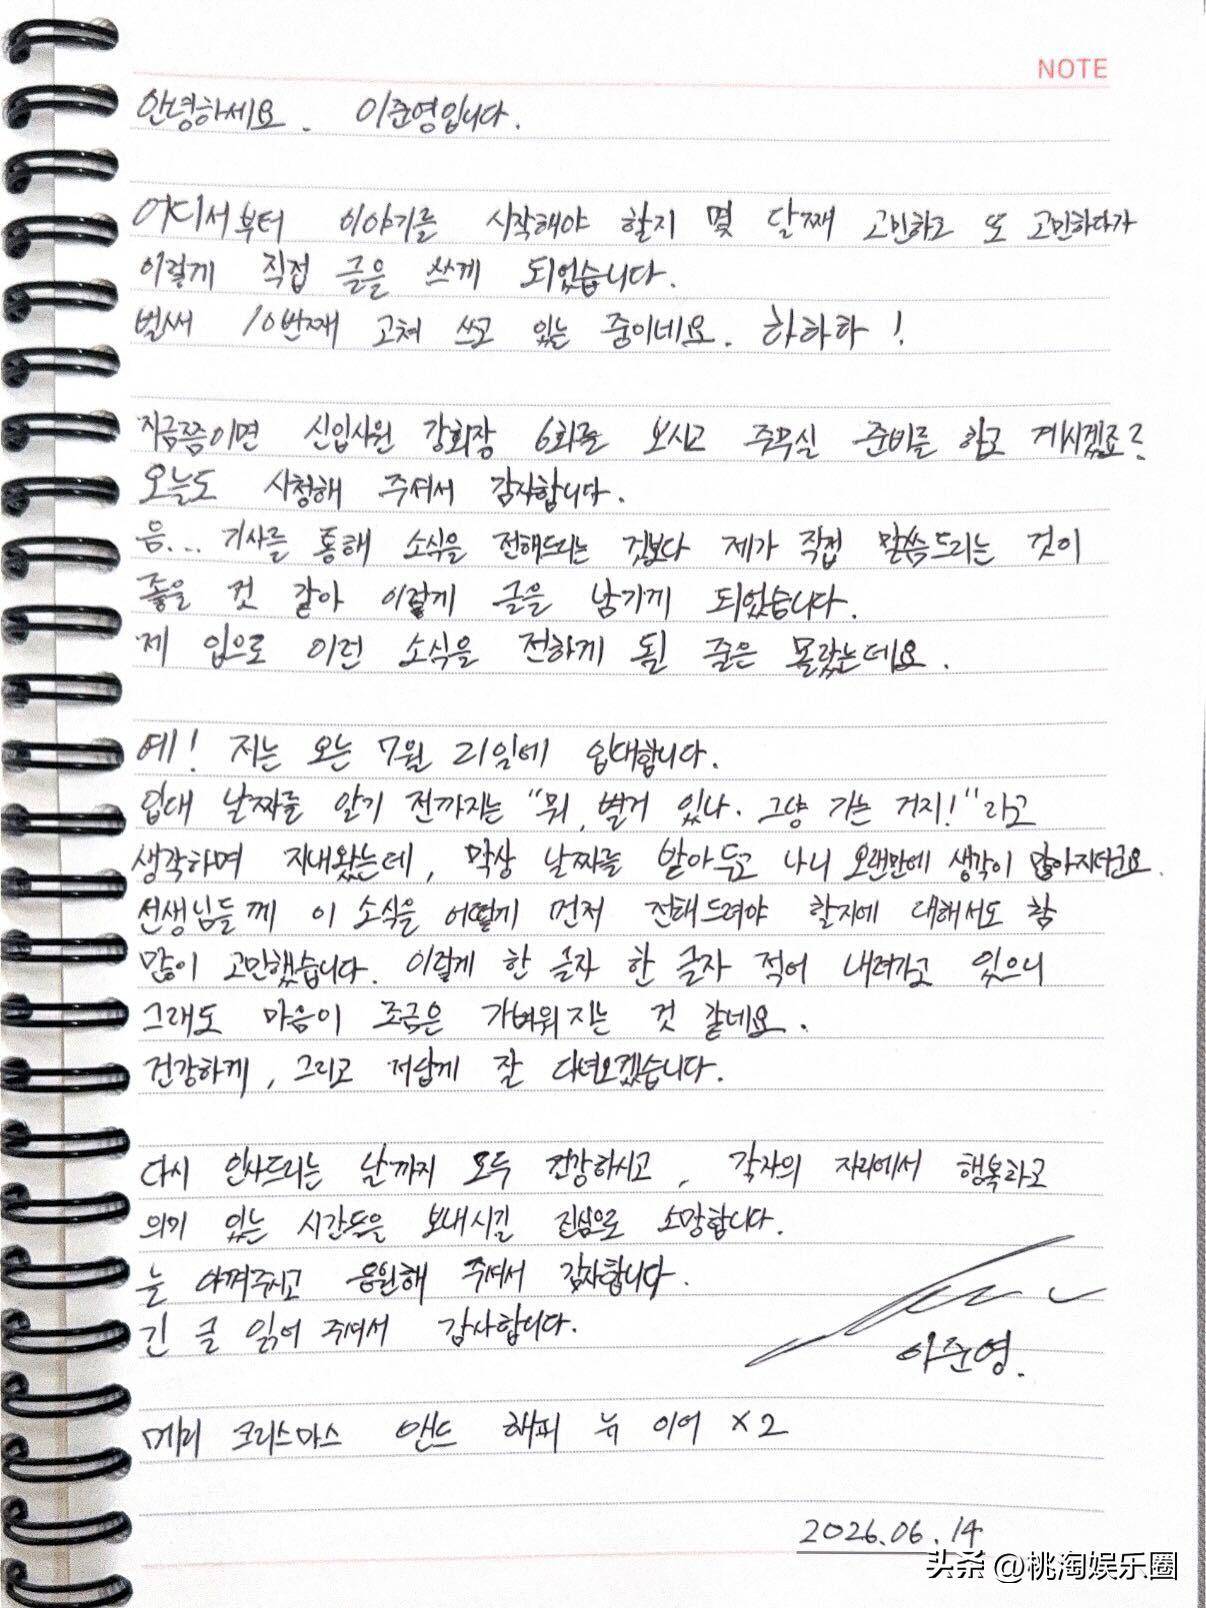 NOTE
안녕하세요. 이준영입니다.
어디서부터 이야기를 시작해야 할지 몇 달째 고민하고 또 고민하다가
이렇게 직접 글을 쓰게 되었습니다.
벌써 10번째 고쳐 쓰고 있는 중이네요. 하하하!
지금쯤이면 신입사원 강회장 6회를 보시고 주무실 준비를 하고 계시겠죠?
오늘도 시청해 주셔서 감사합니다.
음... 기사를 통해 소식을 전해드리는 것보다 제가 직접 말씀드리는 것이
좋을 것 같아 이렇게 글을 남기게 되었습니다.
제 입으로 이런 소식을 전하게 될 줄은 몰랐는데요.
예! 저는 오는 7월 21일에 입대합니다.
입대 날짜를 알기 전까지는 "뭐, 별거 있나. 그냥 가는 거지!"라고
생각하며 지내왔는데, 막상 날짜를 받아두고 나니 오랜만에 생각이 많아지더군요.
선생님들께 이 소식을 어떻게 먼저 전해드려야 할지에 대해서도 참
많이 고민했습니다. 이렇게 한 글자 한 글자 적어 내려가고 있으니
그래도 마음이 조금은 가벼워지는 것 같네요.
건강하게, 그리고 저답게 잘 다녀오겠습니다.
다시 인사드리는 날까지 모두 건강하시고, 각자의 자리에서 행복하고
의미 있는 시간들을 보내시길 진심으로 소망합니다.
늘 아껴주시고 응원해 주셔서 감사합니다.
긴 글 읽어 주셔서 감사합니다.
이준영.
메리 크리스마스 앤드 해피 뉴 이어 X2
2026.06.14
头条 @桃淘娱乐圈